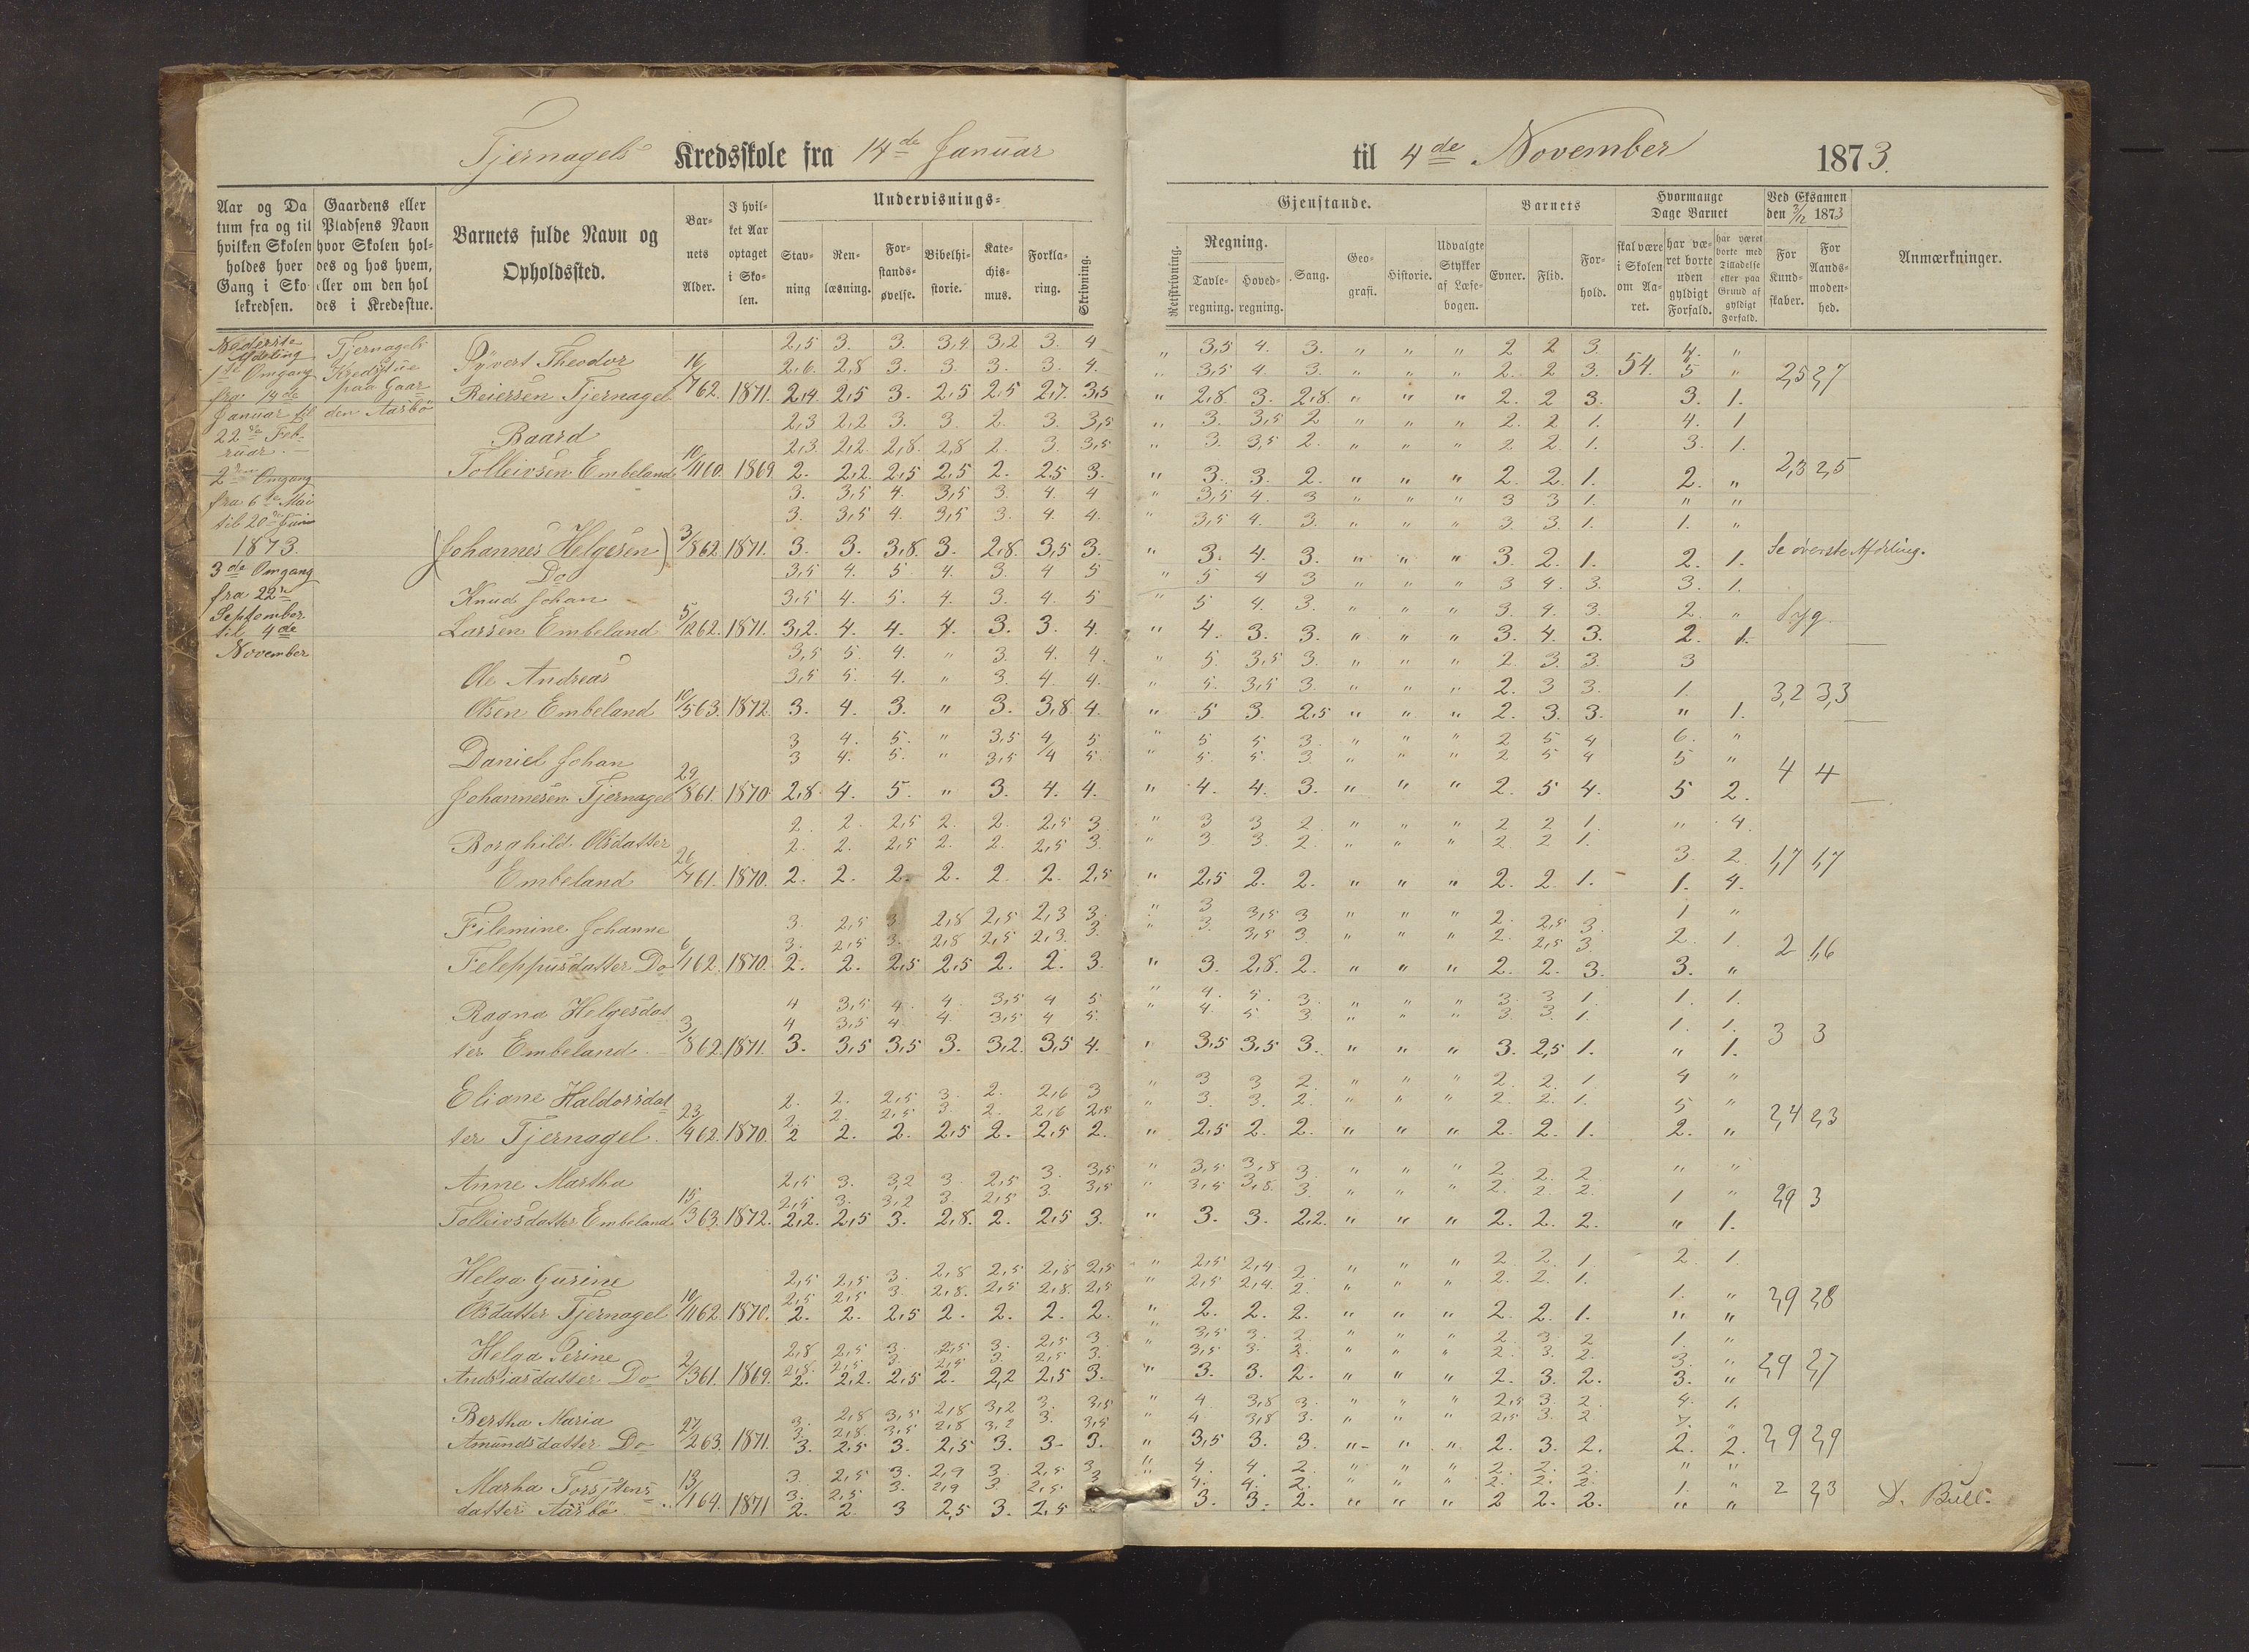 Tjernagels Kredsskole fra 14de Januar
til 4de November 1873.
Aar og Da
tum fra og til
hvilken Skolen
holdes hver
Gang i Sko
lekredsen.
Gaardens eller
Pladsens Navn
hvor Skolen hol-
des og hos hvem,
eller om den hol
des i Kredsstue.
Barnets fulde Navn og
Opholdssted.
Bar-
nets
Alder.
I hvil-
ket Aar
optaget
i Sko-
len.
Undervisnings-
Stav-
ning
Ren-
læsning.
For-
stands-
øvelse.
Bibelhi-
storie.
Kate-
chis-
mus.
Forkla-
ring.
Skrivning.
Gjenstande.
Retskrivning.
Regning.
Tavle-
regning.
Hoved-
regning.
Sang.
Geo-
grafi.
Historie.
Udvalgte
Stykker
af Læse-
bogen.
Barnets
Evner.
Flid.
For-
hold.
Hvormange
Dage Barnet
skal være
i Skolen
om Aa-
ret.
har væ-
ret borte
uden
gyldigt
Forfald.
har været
borte med
Tilladelse
eller paa
Grund af
gyldigt
Forfald.
Ved Eksamen
den 3/12 1873
For
Kund-
skaber.
For
Aands-
moden-
hed.
Anmærkninger.
Nederste
Afdeling
1ste Omgang
fra 14de
Januar til
22de Feb-
ruar.
2den Omgang
fra 6te Mai
til 20de Juni
1873.
3die Omgang
fra 22de
September
til 4de
November
Tjernagels
Kredsstue
paa Gaar
den Aarbø
2,5 3. 3. 3,4 3,2 3. 4 " 3,5 4. 3. " " " 2 2 3. 4. "
Syvert Theodor 2,6. 2,8 3. 3. 3. 3. 4. " 3,5 4. 3. " " " 2. 2 3. 54. 5 " 2,5 2,7
Reiersen Tjernagel 16/7 62. 1871. 2,4 2,5 3. 2,5 2,5 2,7. 3,5 " 2,8 3. 2,8 " " " 2. 2 3. 3. 1.
2,3 2,2 3. 3. 2. 3. 3,5 " 3. 3,5 2 " " " 2. 2 1. 4. 1
Baard 2,3. 2,2. 2,8 2,8 2 3. 3,5 " 3. 3,5 2. " " " 2 2 1. 3. 1.
Tolleivsen Embeland 1869. 2. 2,2. 2,5 2,5 2. 2,5 3. " 3. 3. 2. " " " 2. 2. 1. 2. " 2,3 2,5
3. 3,5 4. 3,5 3. 4. 4 " 3,5 4. 3 " " " 3 3 1. " "
3. 3,5 4. 3,5 3. 4. 4. " 3,5 4. 3. " " " 3. 3. 1. 1. "
(Johannes Helgesen) 3/8 62. 1871. 3. 3. 3,8. 3. 2,8. 3,5 3. " 3. 4. 3. " " " 3. 2. 1. 2. 1. Se øverste Afdeling.
Do 3,5 4. 5 4. 3. 4 5 " 5 4 3 " " " 3 4 3. 3. 1.
Knud Johan 3,5 4. 5. 4. 3. 4. 5 " 5 4. 3. " " " 3. 4. 3. 2. " Syg.
Larsen Embeland 5/12 62. 1871. 3,2. 4. 4. 4. 3. 3. 4. " 4. 3. 3. " " " 3. 4. 3. 2. 1.
3,5 5. 4. " 3. 4. 4. " 5. 3,5 3. " " " 2. 3. 3. 3
Ole Andreas 3,5 5. 4. " 3. 4. 4. " 5. 3,5 3. " " " 2. 3 3. 1. 3,2 3,3
Olsen Embeland 10/5 63. 1872. 3. 4. 3. " 3. 3,8. 4. " 5 3. 2,5 " " " 2. 3. 3. " 1.
3 4. 5. " 3,5 4 5 " 5 5 3. " " " 2 5 4 6. "
Daniel Johan 3 4. 5. " 3,5 4 5 " 5. 5. 3 " " " 2 5 4 5 " 4 4
Johannesen Tjernagel 29/8 61. 1870 2,8 4. 5. " 3. 4. 4. " 4. 4. 3. " " " 2. 5 4. 5 2.
2. 2. 2,5 2. 2. 2,5 3. " 3 3 2. " " " 2 2 1. " 4.
Borghild Olsdatter 2. 2. 2,5 2. 2. 2,5 3. " 3. 3. 2. " " " 2. 2 1. 3. 2 1,7 1,7
Embeland 1870. 2. 2. 2. 2. 2. 2. 2,5 " 2,5 2. 2. " " " 2. 2. 1. 1. 4.
3. 2,5 3 2,8 2,5 2,3 3. " 3 3,5 3 " " " 2. 2,5 3. 1 "
Filemine Johanne 3. 2,5 3. 2,8 2,5 2,3. 3. " 3. 3,5 3 " " " 2. 2,5 3. 2. 1. 2 1,6
Feleppusdatter Do 6/1 62. 1870. 2. 2. 2,5 2,5 2. 2. 3. " 3. 2,8. 2. " " " 2. 2. 3. 3. "
4 3,5 4. 4. 3,5 4 5 " 4. 5. 3. " " " 3. 3 1. 1. 1.
Ragna Helgesdat 4 3,5 4. 4. 3,5 4 5. " 4. 5 3. " " " 3 3. 1. 1. 1. 3 3
ter Embeland. 3/8 62. 1871. 3. 3,5 3,5 3. 3,2. 3,5 4. " 3,5 3,5 3. " " " 3. 2,5 1. " 1.
2. 2. 2,5 3. 2. 2,6 3 " 3 3 2. " " " 2. 2. 1 4 "
Eliane Haldorsdat 2. 2. 2,5 3. 2. 2,6 2,5 " 3. 3. 2. " " " 2. 2. 1. 5 " 2,4 2,3
ter Tjernagel. 23/4 62. 1870. 2 2. 2. 2,5 2. 2,5 2. " 2,5 2. 2. " " " 2. 2. 1. 2. "
2,5 3. 3,2 3. 2,5 3. 3,5 " 3,5 3,8 3. " " " 2. 2. 2. " "
Anne Martha 2,5 3. 3,2 3. 2,5 3. 3,5 " 3,5 3,8. 3. " " " 2. 2. 2. 1 " 2,9 3
Tolleivsdatter Embeland 15/3 63. 1872. 2,2. 2,5 3. 2,8. 2. 2,5 3. " 3. 3. 2,2. " " " 2. 2. 2. " 1.
2,5 2,5 3. 2,8 2,5 2,8 2,5 " 2,5 2,4 2 " " " 2 2. 1 2. 1.
Helga Gurine 2,5 2,5 3. 2,8. 2,5 2,8. 2,5 " 2,5 2,4. 2. " " " 2. 2. 1. 1. " 2,9 2,8
Olsdatter Tjernagel 10/11 62. 1870. 2. 2. 2,5 2. 2. 2. 2. " 2. 2. 2. " " " 2. 2. 1. " "
2,8 2,5 3. 2,5 3. 2,5 3 " 3,5 3. 2. " " " 2. 3. 2 1. "
Helga Serine 2,8. 2,5 3. 2,5 3. 2,5 3. " 3,5 3. 2. " " " 2. 3. 2. 3. " 2,9 2,7
Andriasdatter Do 2/3 61. 1869. 2. 2,2. 2,5 2. 2,2 2,5 3. " 3. 3. 2. " " " 2. 3. 2. 3. "
3. 2,8 3,5 2,8 3,2 3. 3,5 " 4 3,8 3. " " " 2,5 3. 2. 4. 1.
Bertha Maria 3. 2,8. 3,5 2,8 3,2 3. 3,5 " 4 3,8 3. " " " 2,5 3. 2 "
Amundsdatter Do 27/2 63. 1871. 3. 2,5 3. 2,5 3. 3 3. " 3,5 3. 3. " " " 2. 3. 2. 2. 2. 2,9 2,9
3. 2,5 3. 2,9 3. 2,5 3 " 4. 4. 2. " " " 2. 2. 2. " "
Martha Torstens 3. 2,5 3. 2,9 3. 2,5 3 " 4. 4. 2. " " " 2. 2. 2. 1. " 2 2,3
datter Aarbø 13/1 64. 1871 2. 2. 3 2,5 3. 2,5 3. 3. 2. " " " 2 2. 2. " " D. Bull.